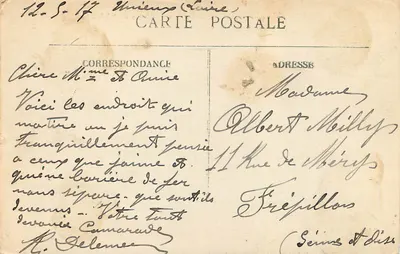 12-5-17 Unieux (Loire)
CARTE POSTALE
CORRESPONDANCE
Chère Mme et Amie
Voici les endroit qui
ou je puis
tranquillement pensée
a ceux que j'aime et
qu'une barière de fer
nous sépare. que sont ils
devenus - Votre tout
dévoué Camarade
ADRESSE
Madame
Albert Milly
11 Rue de Méry
Frépillon
(Seine et Oise